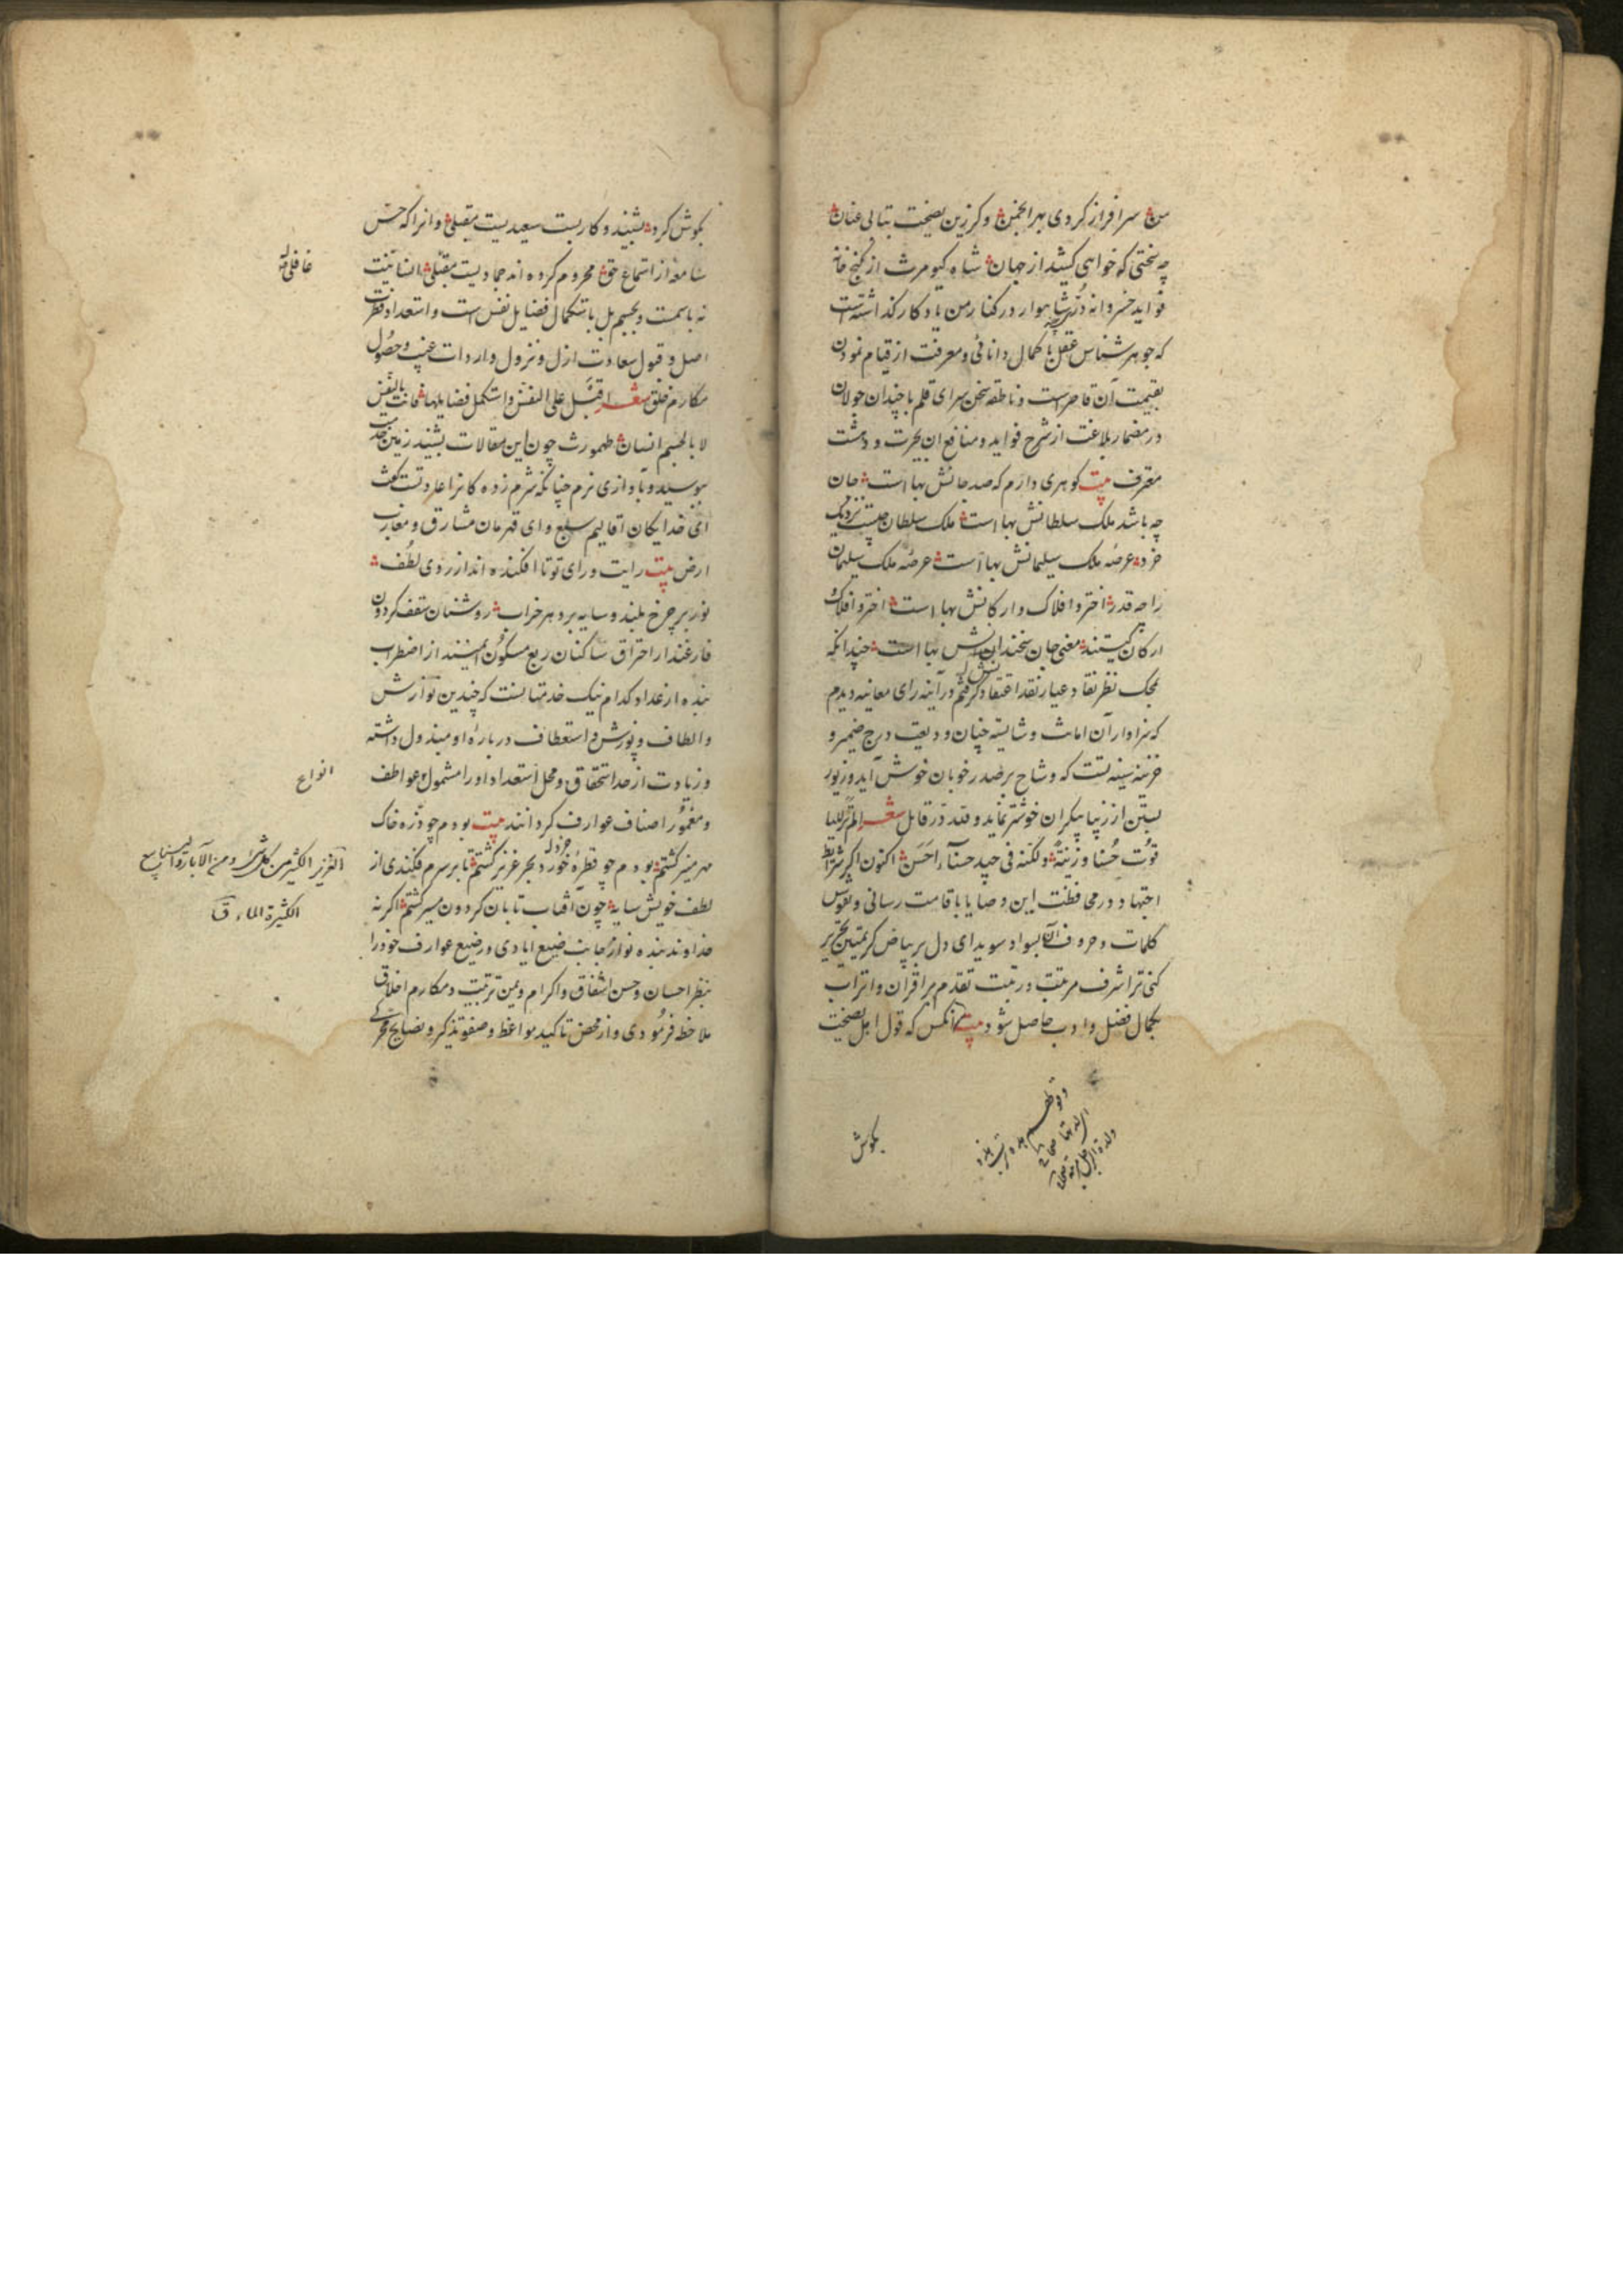 من سرافراز کردی بهر انجمن وکر زین نصیحت بتابی عنان
چه سختی که خواهی کشید از جهان شاه کیومرث از کنج خانه
فواید خسروانه دُرّ شاهوار در کنار من یادکار کذاشته است
که جوهر شناس عقل با کمال دانائی و معرفت از قیام نمودن
بقیمت آن قاصرست و ناطقه سخن سرای قلم با چندان جولان
در مضمار بلاغت از شرح فواید و منافع ان بحیرت و دهشت
معترف بیت کوهری دارم که صد جانش بها است جان
چه باشد ملک سلطانش بها است ملک سلطان چیست نزدیک
خرد عرصه ملک سلیمانش بها است عرصه ملک سلیمان
را چه قدر اختر و افلاک و ارکانش بها است اختر و افلاک و
ارکان کیستند معنی جان سخندانش بها است چندانکه
بمحک نظر نقاد عیار نقد اعتقاد کرفتم در آینه رای معاینه دیدم
که سزاوار آن امانت و شایسته چنان ودیعت درج ضمیر و
خزینه سینه تست که وشاح بر صدر خوبان خوش آید و زیور
بستن از زیبا پیکران خوشتر نماید ولله درّ قائل شعر الم تر
قوت حُسنا و زینةً ولکنه فی جید حسنآء احسن اکنون اکر شرایط
اجتهاد در محافظت این وصایا باقامت رسانی و نقوش
کلمات و حروف آن بسواد سویدای دل بر بیاض کریمتین تحریر
کنی ترا شرف مرتبت و رتبت تقدم بر اقران و اتراب
بکمال فضل و ادب حاصل شود بیت انکس که قول اهل نصیحت
بکوش
بکوش کرد بشنید و کار بست سعیدیست مقبلی وانرا که حسّ
سامعه از استماع حق محروم کرده اند جمادیست مقبلی انسانیت
نه باسمست و بجسم بل باستکمال فضایل نفس است و استعداد فطرت
اصل و قبول سعادت ازل و نزول واردات غیب و حصول
مکارم خلق شعر اقبل علی النفس واستکمل فضایلها فانت بالنفس
لا بالجسم انسان طهمورث چون این مقالات بشنید زمین خدمت
ببوسید و بآوازی نرم چنانکه شرم زده کانرا عادتست کفت
ای خدایکان اقالیم سبع و ای قهرمان مشارق و مغارب
ارض بیت رایت و رای تو تا افکنده اند از روی لطف
نور بر چرخ بلند و سایه بر دهر خراب روشنان سقف کردون
فارغند از احتراق ساکنان ربع مسکون ایمنند از اضطراب
بنده از عداد کدام نیک خدمتانست که چندین نوازش
و الطاف و پوزش و استعطاف در باره او مبذول داشته
و زیادت از حد استحقاق و محل استعداد او را مشمول عواطف
انواع
و مغمور اصناف عوارف کردانند بیت بودم چو ذره خاک
مهر منیر کشتم بودم چو قطره خورد بحر غزیر کشتم تا بر سرم فکندی از
الغزیر الکثیر من کل شئ ومن الآبار والینابیع
لطف خویش سایه چون آفتاب تابان کردون سیر کشتم اکر نه
الکثیرة الماء ق
خداوند بنده نواز بجانب صنیع ایادی و رضیع عوارف خود را
بنظر احسان و حسن اشفاق و اکرام و یمن تربیت و مکارم اخلاق
ملاحظه فرمودی و از محض تاکید مواعظ و صفوت تذکیر و نصایح